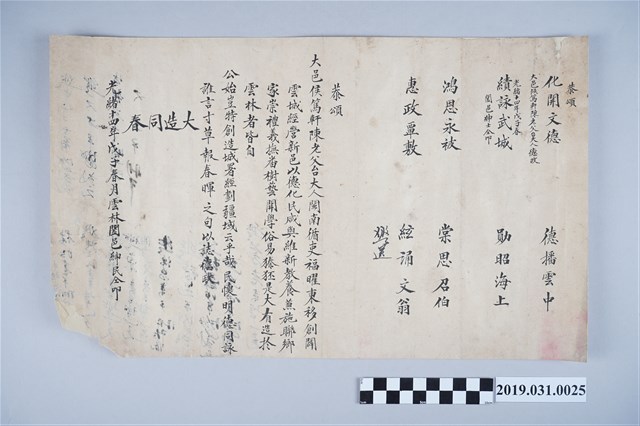 恭頌
化開文德
德播雲中
大邑侯篤軒陳老父臺大人德政
續詠武城
勛昭海上
光緒十四年戊子春
闔邑紳士仝叩
鴻恩永被
棠思召伯
惠政覃敷
絃誦文翁
恭頌
大邑侯篤軒陳老父台大人閩南循吏福曜東移創開
雲城經營新邑以德化民咸與維新教養兼施聯鄉
家崇禮義撫畬樹藝開學俗易獉狉是大有造於
雲林者皆自
公始豈特創造城署經劃疆域云乎哉民懷明德同詠
雅言寸草報春暉之句以誌
大造同春
光緒十四年戊子春月雲林闔邑紳民仝叩
2019.031.0025